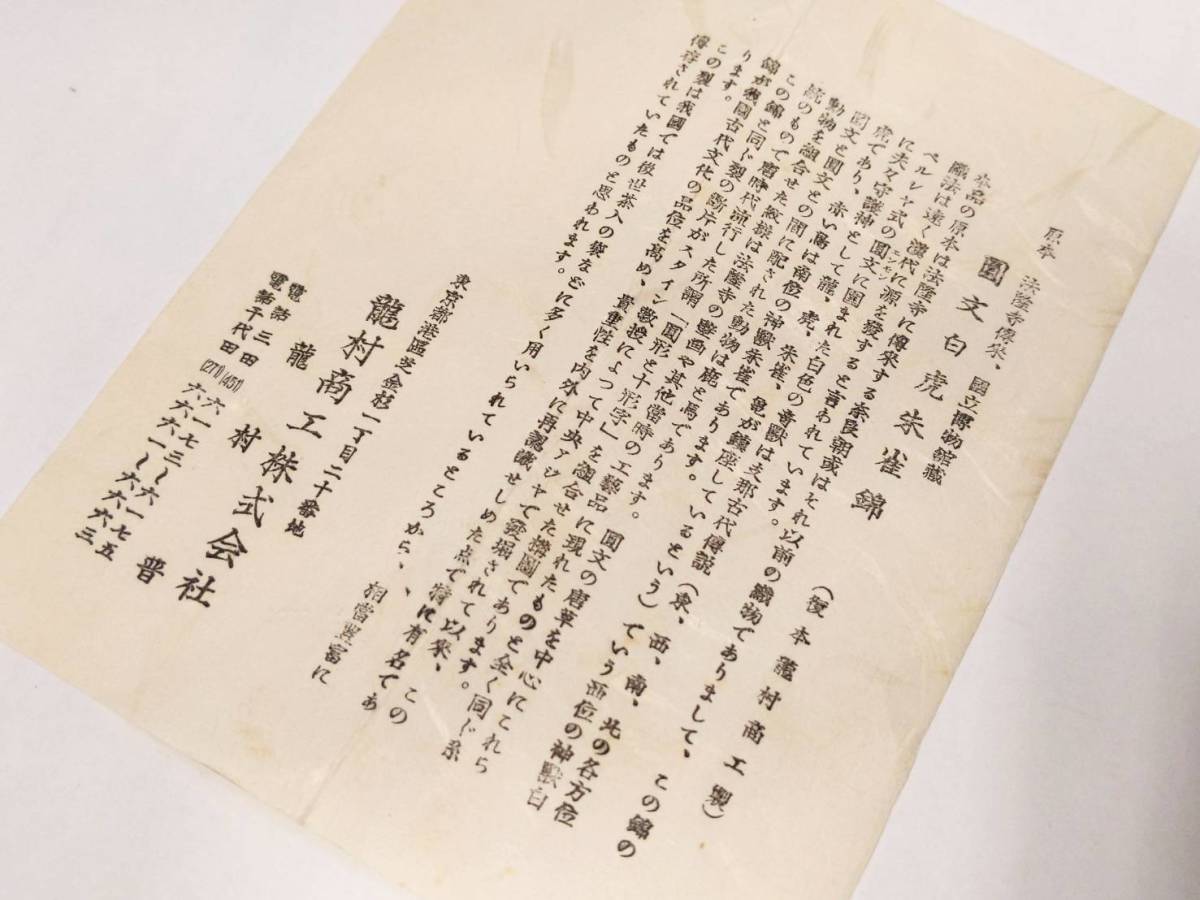 原本 法隆寺傳来、國立博物館藏
圓文白虎朱雀錦 (複本龍村商工製)
本品の原本は法隆寺に傳来する奈良朝或はそれ以前の織物でありまして、この錦の
織法は遠く漢代に源を發すると言われています。
ペルシヤ式の圓文に圍まれた白色の奇獸は支那古代傳説(東、西、南、北の各方位
に夫々守護神として龍、虎、朱雀、亀が鎮座しているという)でいう西位の神獸白
虎であり、赤い鳥は南位の神獸朱雀であります。
圓文と圓文との間に配された動物は鹿と馬であります。圓文の唐草を中心にこれら
動物を組合せた紋様は法隆寺の壁画や其他當時の工藝品に現れたものと全く同じ系
統のもので唐時代流行した所謂「圓形と十形字」を組合せた構圖であります。
この錦と同じ製の断片がスタイン教授によって中央アジヤで發掘されて以来、この
錦が我國古代文化の品位を高め、貴重性を内外に再認識せしめた点で特に有名であ
ります。
この製は我國では後世茶入の袋などに多く用いられているところから、相當豊富に
傳存されていたものと思われます。
東京都港區芝金杉一丁目二十番地
龍村商工株式会社
龍村 普
電話三田(451)六一七三〜六一七五
電話千代田(271)六六六一〜六六六三